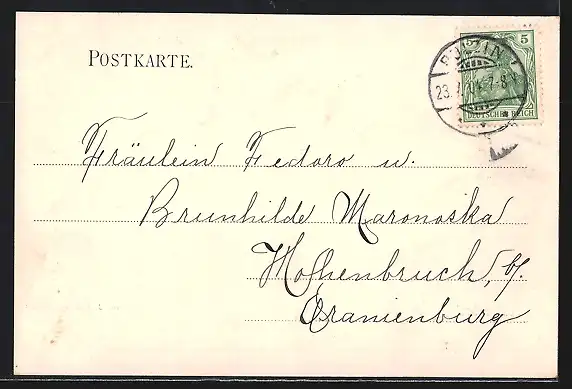 POSTKARTE.
5 5
DEUTSCHES REICH
23. 7-8V.
Fräulein Fedora u.
Brunhilde Maronoska
Hohenbruch, b/.
Oranienburg